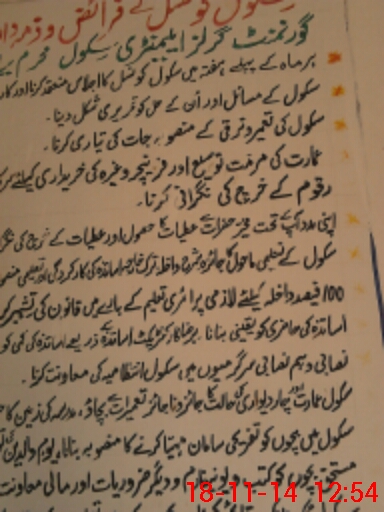 سکول کونسل کے فرائض و ذمہ دا
گورنمنٹ گرلز ایلیمنٹری سکول محرم
ہر ماہ کے پہلے ہفتہ میں سکول کونسل کا اجلاس منعقد کرنا اور کار
سکول کے مسائل اور اُن کے حل کو تحریری شکل دینا۔
سکول کی تعمیر و ترقی کے منصوبہ جات کی تیاری کرنا۔
عمارت کی مرمت توسیع اور فرنیچر وغیرہ کی خریداری کیلئے
رقوم کے خرچ کی نگرانی کرنا۔
اپنی مدد آپ کے تحت مخیر حضرات سے عطیات کا حصول اور عطیات کے خرچ کی
سکول کے تعلیمی ماحول کا جائزہ شرح داخلہ اساتذہ کی کارکردگی اور تعلیمی
100 فیصد داخلہ کیلئے لازمی پرائمری تعلیم کے بارے میں قانون کی تشہیر
اساتذہ کی حاضری کو یقینی بنانا۔ کنٹریکٹ اساتذہ کے ذریعہ اساتذہ کی کمی کو
نصابی و ہم نصابی سرگرمیوں میں سکول انتظامیہ کی معاونت کرنا۔
سکول عمارت اور چار دیواری کی حالت کا جائزہ ناجائز تعمیرات سے بچاؤ، مدرسہ کی زمین کا
سکول میں بچوں کو تفریحی سامان مہیا کرنے کا منصوبہ بنانا، یوم والدین
مستحق بچوں کی کتب و یونیفارم و دیگر ضروریات اور مالی معاونت
18-11-14 12:54